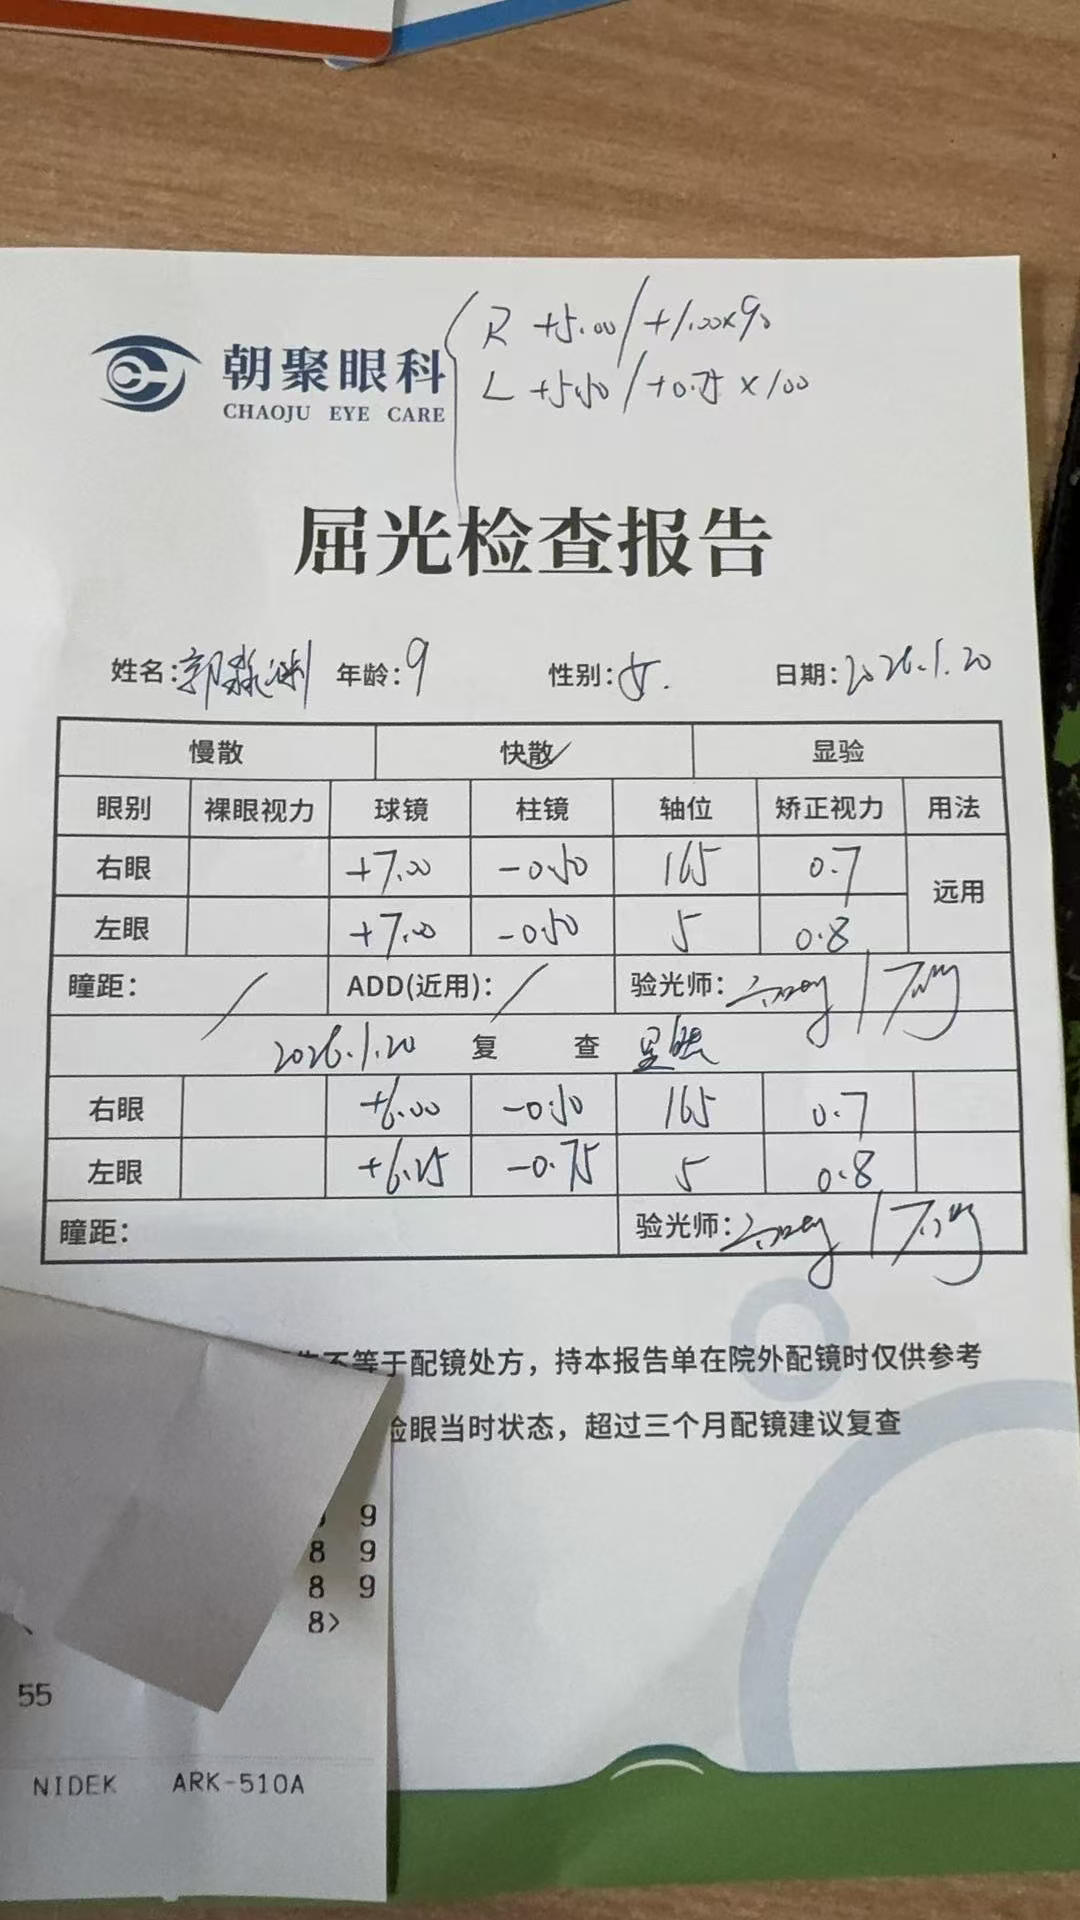 R +5.00/+1.00×90
L +5.50/+0.75×100
朝聚眼科
CHAOJU EYE CARE
屈光检查报告
姓名:郭淼渊 年龄:9 性别:女. 日期:2026.1.20
慢散 快散✓ 显验
眼别 裸眼视力 球镜 柱镜 轴位 矫正视力 用法
右眼 +7.00 -0.50 165 0.7 远用
左眼 +7.00 -0.50 5 0.8
瞳距: / ADD(近用): / 验光师:
2026.1.20 复 查 显验
右眼 +6.00 -0.50 165 0.7
左眼 +6.25 -0.75 5 0.8
瞳距: 验光师:
不等于配镜处方，持本报告单在院外配镜时仅供参考
验眼当时状态，超过三个月配镜建议复查
9
8 9
8 9
8>
55
NIDEK ARK-510A